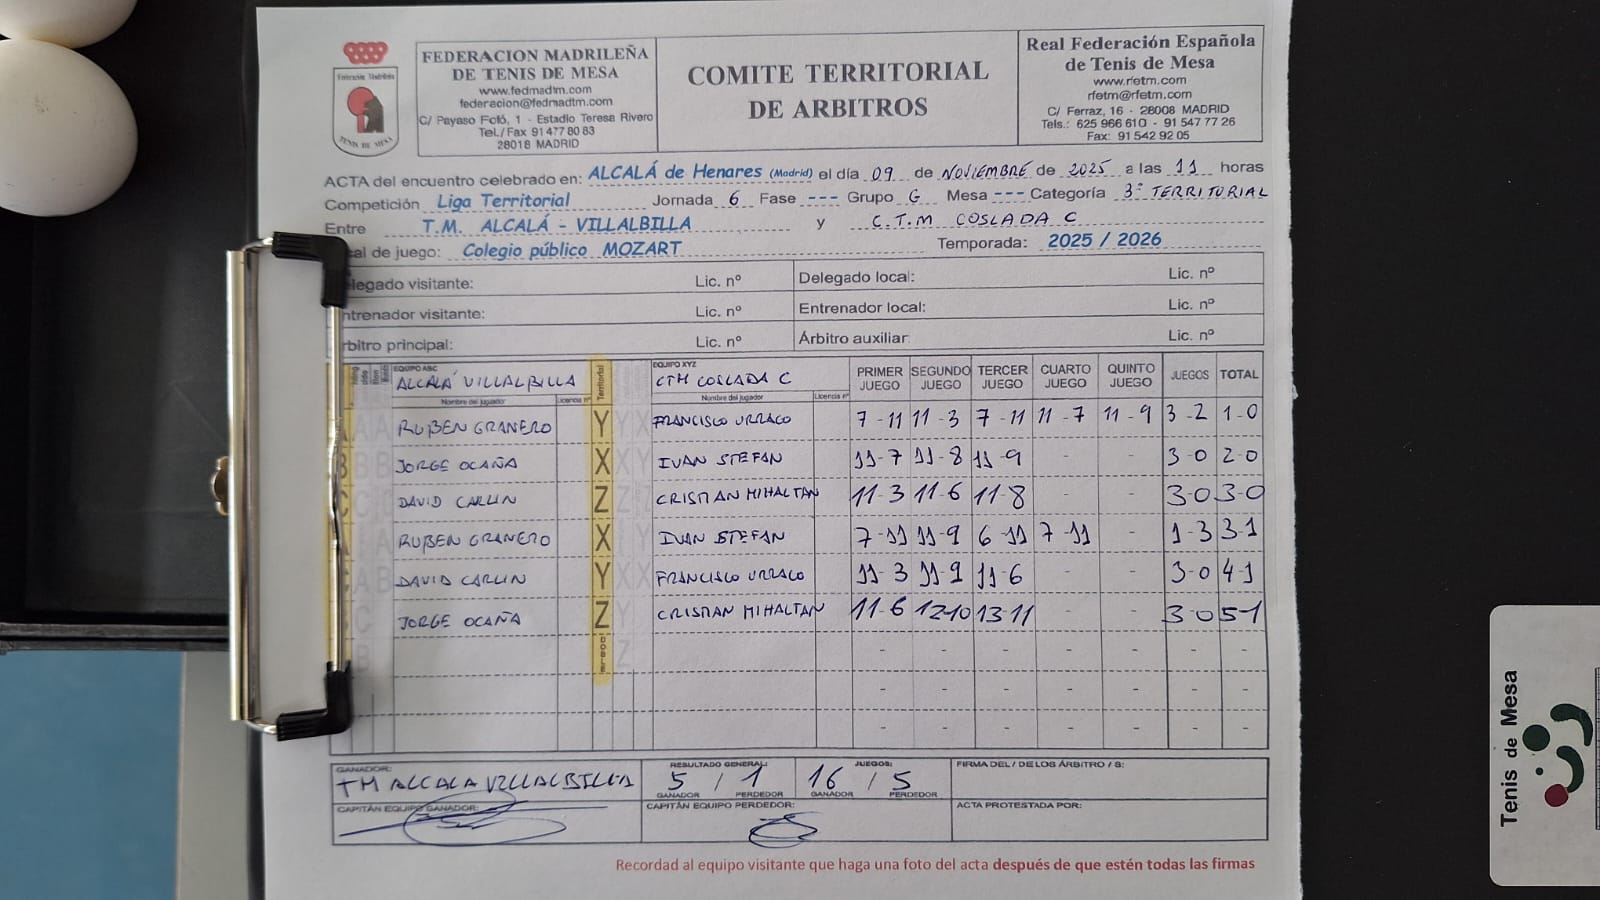 FEDERACION MADRILEÑA
DE TENIS DE MESA
www.fedmadtm.com
federacion@fedmadtm.com
C/ Payaso Fofó, 1 - Estadio Teresa Rivero
Tel./Fax 91 477 80 83
28018 MADRID
TENIS DE MESA
COMITE TERRITORIAL
DE ARBITROS
Real Federación Española
de Tenis de Mesa
www.rfetm.com
rfetm@rfetm.com
C/ Ferraz, 16 - 28008 MADRID
Tels.: 625 966 610 - 91 547 77 26
Fax: 91 542 92 05
ACTA del encuentro celebrado en: ALCALÁ de Henares (Madrid) el día 09 de NOVIEMBRE de 2025 a las 11 horas
Competición Liga Territorial Jornada 6 Fase --- Grupo G Mesa --- Categoría 3ª TERRITORIAL
Entre T.M. ALCALÁ - VILLALBILLA y C.T.M COSLADA C
cal de juego: Colegio público MOZART Temporada: 2025 / 2026
elegado visitante: Lic. nº Delegado local: Lic. nº
ntrenador visitante: Lic. nº Entrenador local: Lic. nº
rbitro principal: Lic. nº Árbitro auxiliar: Lic. nº
EQUIPO ABC ALCALÁ VILLALBILLA Territorial EQUIPO XYZ CTM COSLADA C PRIMER JUEGO SEGUNDO JUEGO TERCER JUEGO CUARTO JUEGO QUINTO JUEGO JUEGOS TOTAL
Nombre del jugador Licencia nº Nombre del jugador Licencia nº
RUBEN GRANERO Y FRANCISCO URRACO 7-11 11-3 7-11 11-7 11-9 3-2 1-0
JORGE OCAÑA X IVAN STEFAN 11-7 11-8 11-9 - - 3-0 2-0
DAVID CARLIN Z CRISTIAN MIHALTAN 11-3 11-6 11-8 - - 3-0 3-0
RUBEN GRANERO X IVAN STEFAN 7-11 11-9 6-11 7-11 - 1-3 3-1
DAVID CARLIN Y FRANCISCO URRACO 11-3 11-9 11-6 - - 3-0 4-1
JORGE OCAÑA Z CRISTIAN MIHALTAN 11-6 12-10 13-11 - - 3-0 5-1
- - - - - - -
- - - - - - -
- - - - - - -
GANADOR: TM ALCALA VILLALBILLA RESULTADO GENERAL: 5 / 1 GANADOR PERDEDOR JUEGOS: 16 / 5 GANADOR PERDEDOR FIRMA DEL / DE LOS ÁRBITRO / S:
CAPITÁN EQUIPO GANADOR: CAPITÁN EQUIPO PERDEDOR: ACTA PROTESTADA POR:
Recordad al equipo visitante que haga una foto del acta después de que estén todas las firmas
Tenis de Mesa